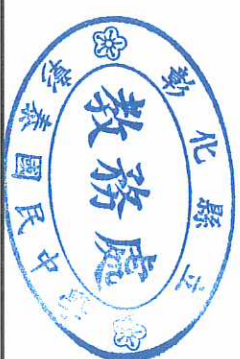 彰化縣立
彰泰國民中學
教務處